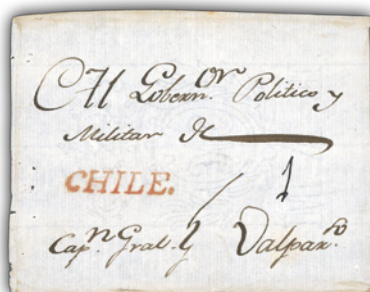 Al Gobern.or Politico y
Militar de
CHILE.
Cap.n Gral.
Valpar.o